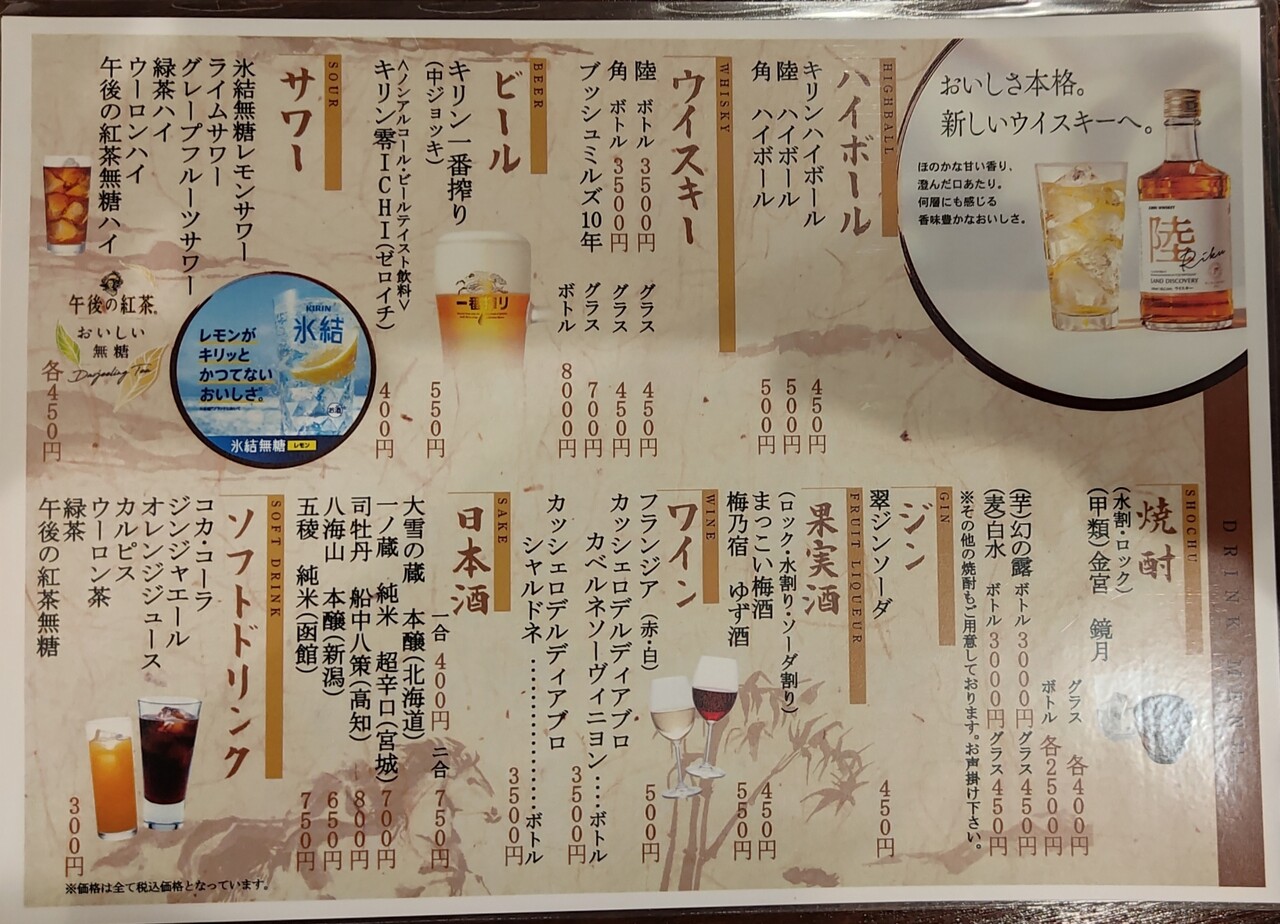 DRINK MENU
おいしさ本格。
新しいウイスキーへ。
ほのかな甘い香り、
澄んだ口あたり。
何層にも感じる
香味豊かなおいしさ。
陸
Riku
LAND DISCOVERY
HIGHBALL
ハイボール
キリンハイボール 450円
陸 ハイボール 500円
角 ハイボール 500円
WHISKY
ウイスキー
陸 ボトル 3500円 グラス 450円
角 ボトル 3500円 グラス 450円
ブッシュミルズ10年 グラス 700円
ボトル 8000円
BEER
ビール
キリン一番搾り
(中ジョッキ) 550円
<ノンアルコール・ビールテイスト飲料>
キリン零ICHI(ゼロイチ) 400円
一番搾り
SOUR
サワー
氷結無糖レモンサワー
ライムサワー
グレープフルーツサワー
緑茶ハイ
ウーロンハイ
午後の紅茶無糖ハイ
各450円
午後の紅茶
おいしい
無糖
Darjeeling Tea
レモンが
キリッと
かつてない
おいしさ。
KIRIN
氷結
お酒
氷結無糖 レモン
SHOCHU
焼酎
(水割・ロック)
(甲類)金宮 鏡月
グラス 各400円
ボトル 各2500円
(芋)幻の露 ボトル 3000円 グラス 450円
(麦)白水 ボトル 3000円 グラス 450円
※その他の焼酎もご用意しております。お声掛け下さい。
GIN
ジン
翠ジンソーダ 450円
FRUIT LIQUEUR
果実酒
(ロック・水割り・ソーダ割り)
まっこい梅酒 450円
梅乃宿 ゆず酒 550円
WINE
ワイン
フランジア (赤・白) 500円
カッシェロデルディアブロ
カベルネソーヴィニヨン‥‥ボトル 3500円
カッシェロデルディアブロ
シャルドネ‥‥‥‥‥‥‥ボトル 3500円
SAKE
日本酒
一合 400円 二合 750円
大雪の蔵 本醸(北海道)
一ノ蔵 純米 超辛口(宮城) 700円
司牡丹 船中八策(高知) 800円
八海山 本醸(新潟) 650円
五稜 純米(函館) 750円
SOFT DRINK
ソフトドリンク
コカ・コーラ
ジンジャエール
オレンジジュース
カルピス
ウーロン茶
緑茶
午後の紅茶無糖
300円
※価格は全て税込価格となっています。